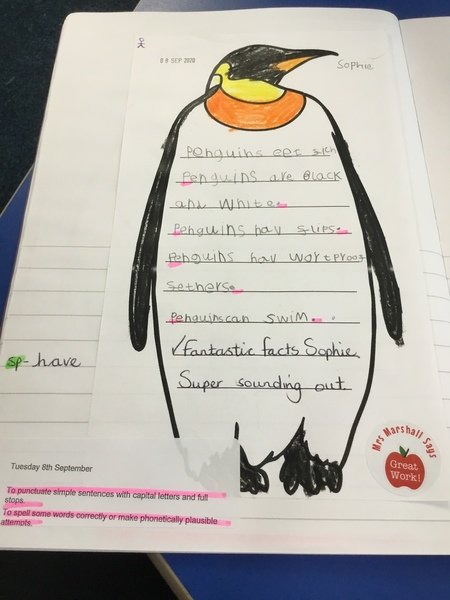 08 SEP 2020
Sophie
Penguins eet fich
Penguins are black
and white.
Penguins hav flips.
Penguins hav wortproof
fethers.
Penguins can swim.
✓ Fantastic facts Sophie
Super sounding out.
sp- have
Mrs Marshall Says
Great
Work!
Tuesday 8th September
To punctuate simple sentences with capital letters and full
stops.
To spell some words correctly or make phonetically plausible
attempts.